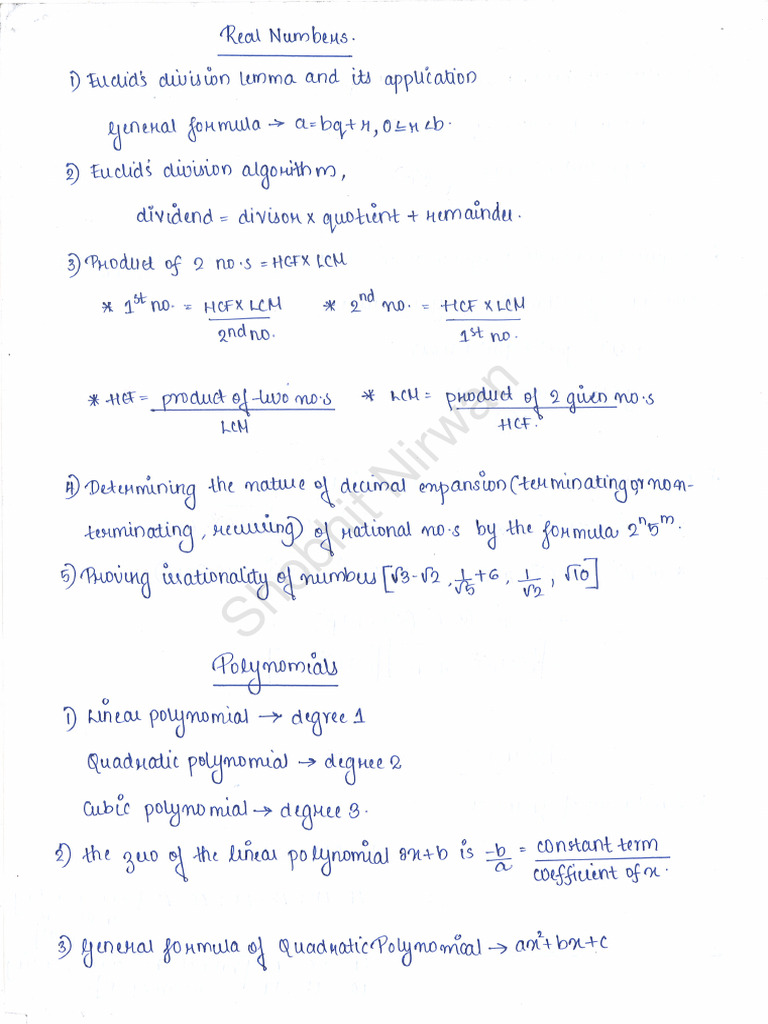 Real Numbers.
1) Euclid's division lemma and its application
General formula → a=bq+r, 0≤r<b.
2) Euclid's division algorithm,
dividend = divisor x quotient + remainder.
3) Product of 2 no.s = HCF X LCM
* 1st no. = HCF X LCM / 2nd no. * 2nd no. = HCF X LCM / 1st no.
* HCF = product of two no.s / LCM * LCM = product of 2 given no.s / HCF.
4) Determining the nature of decimal expansion (terminating or non-
terminating, recurring) of rational no.s by the formula 2ⁿ5ᵐ.
5) Proving irrationality of numbers [√3-√2, 1/√5 +6, 1/√2, √10]
Shobhit Nirwan
Polynomials
1) Linear polynomial → degree 1
Quadratic polynomial → degree 2
Cubic polynomial → degree 3.
2) the zero of the linear polynomial ax+b is -b/a = constant term / coefficient of x.
3) General formula of Quadratic Polynomical → ax²+bx+c